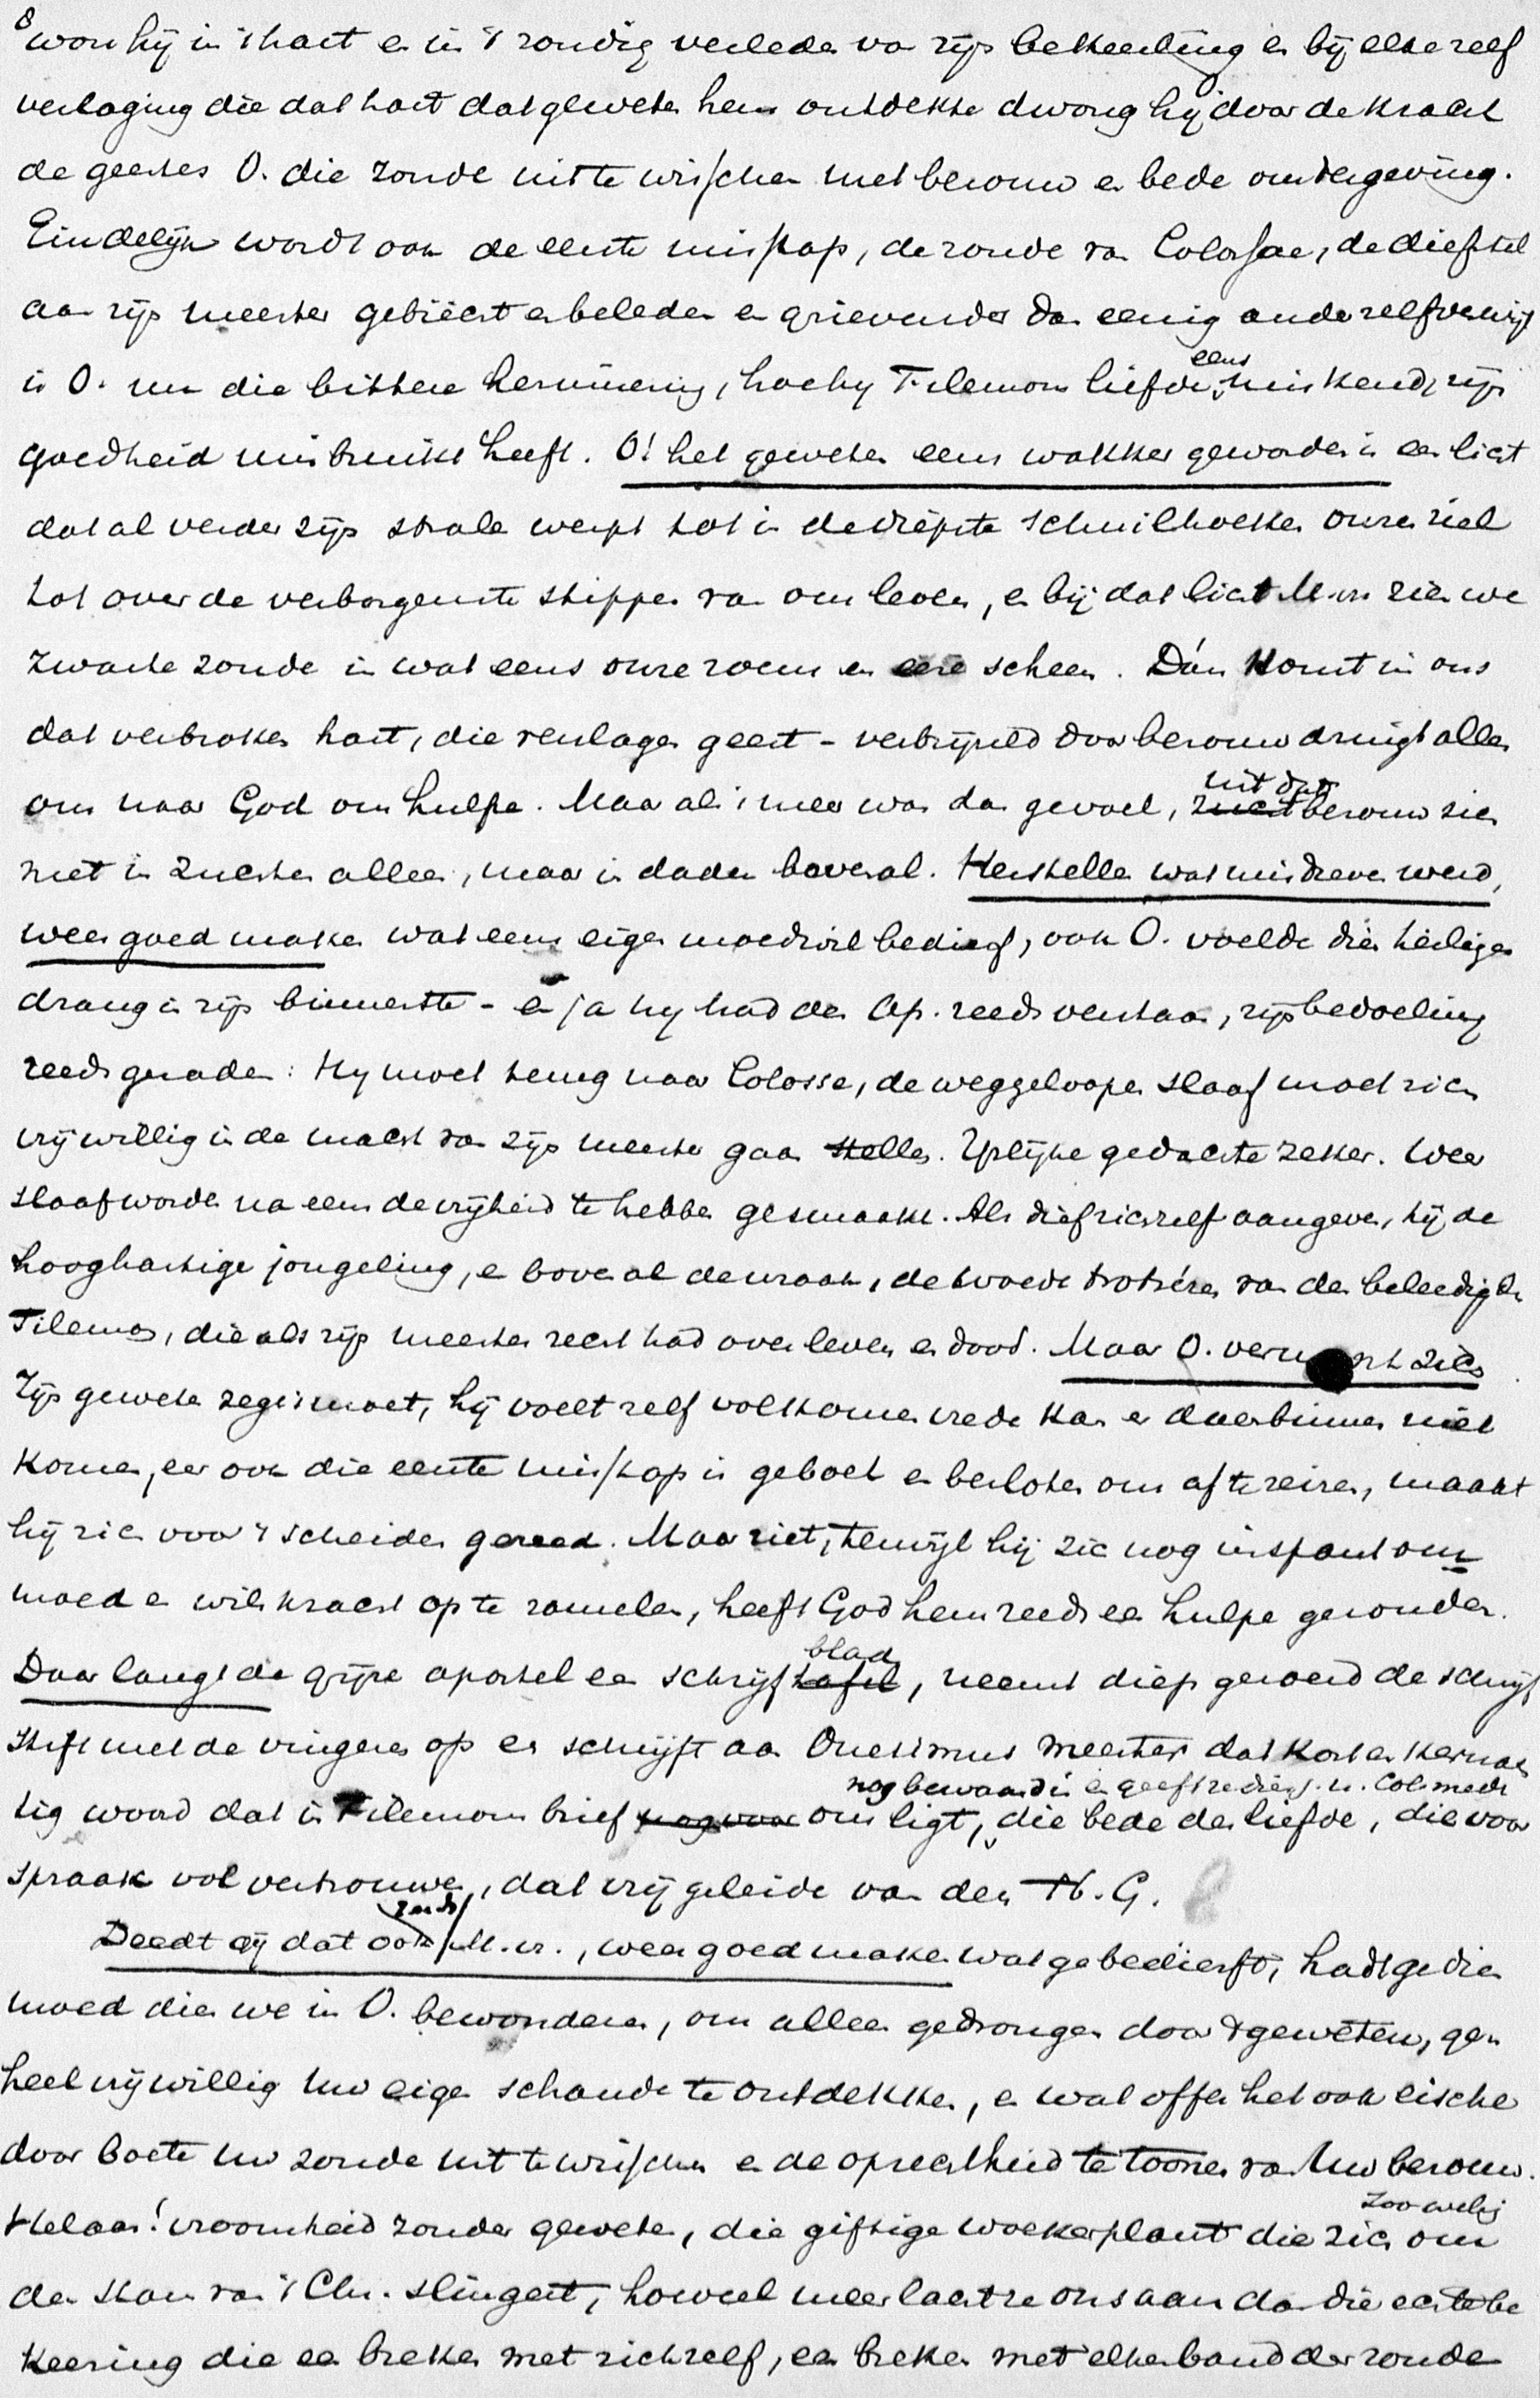 8
won hij in 't hart en in 't zondig verleden van zijn bekeering en bij elke zelf
verlaging die dat hart dat geweten hem ontdekte dwong hij door de kracht
de geestes O. die zonde uit te wisschen met berouw en bede om vergeving.
Eindelijk wordt ook de eerste misstap, de zonde van Colossae, de diefstal
aan zijn meester gebiecht en beleden en grievender dan eenig ander zelfverwijt
is O. nu die bittere herinnering, hoe hij Filemons liefde eens miskend, zijn
goedheid misbruikt heeft. O! het geweten eens wakker geworden is een licht
dat al verder zijn stralen werpt tot in de diepste schuilhoeken onzer ziel
tot over de verborgenste stippen van ons leven, en bij dat licht M.vr. zien we
zwarte zonde in wat eens onze roem en eere scheen. Dán komt in ons
dat verbroken hart, die verslagen geest - verbrijzeld door berouw dringt alles
ons naar God om hulpe. Maar als 't meer was dan gevoel, zucht uit dat berouw zich
niet in zuchten alleen, maar in daden bovenal. Herstellen wat misdreven werd,
weer goed maken wat eens eigen moedwil bedierf, ook O. voelde dien heiligen
drang in zijn binnenste - en ja hij had den Ap. reeds verstaan, zijn bedoeling
reeds geraden: Hij moet terug naar Colosse, de weggeloopen slaaf moet zich
vrijwillig in de macht van zijn meester gaan stellen. IJslijke gedachte zeker. Weer
slaaf worden na eens de vrijheid te hebben gesmaakt. Als dief zichzelf aangeven, hij de
hooghartige jongeling, en bovenal de wraak, de woede trotséren van den beleedigden
Filemon, die als zijn meester recht had over leven en dood. Maar O. verm nt zich
Zijn geweten zegt 't moet, hij voelt zelf volkomen vrede kan er daarbinnen niet
komen, eer ook die eerste misstap is geboet en besloten om af te reizen, maakt
hij zich voor 't scheiden gereed. Maar ziet, terwijl hij zich nog inspant om
moed en wilskracht op te zamelen, heeft God hem reeds een hulpe gezonden.
Daar langt de grijze apostel een schrijftafel blad, neemt diep geroerd de schrijf
stift met de vingeren op en schrijft aan Onesimus meester dat kort en kernach
tig woord dat in Filemons brief nog voor ons ligt, nog bewaard is en geeft die bede der liefde, die voor
spraak vol vertrouwen, dat vrijgeleide van den H. G.
Deedt gij dat ook M.vr., weer goed maken wat ge bedierft, hadt ge dien
moed dien we in O. bewonderen, om alleen gedrongen door 't geweten, ge
heel vrijwillig Uw eigen schande te ontdekken, en wat offer het ook eischen
door boete Uw zonde uit te wisschen en de oprechtheid te toonen van Uw berouw.
Helaas! vroomheid zonder geweten, die giftige woekerplant die zich zoo welig om
den stam van 't Chr. slingert, hoeveel meer lacht ze ons aan dan die echte be
keering die een breken met zichzelf, een breken met elken band der zonde